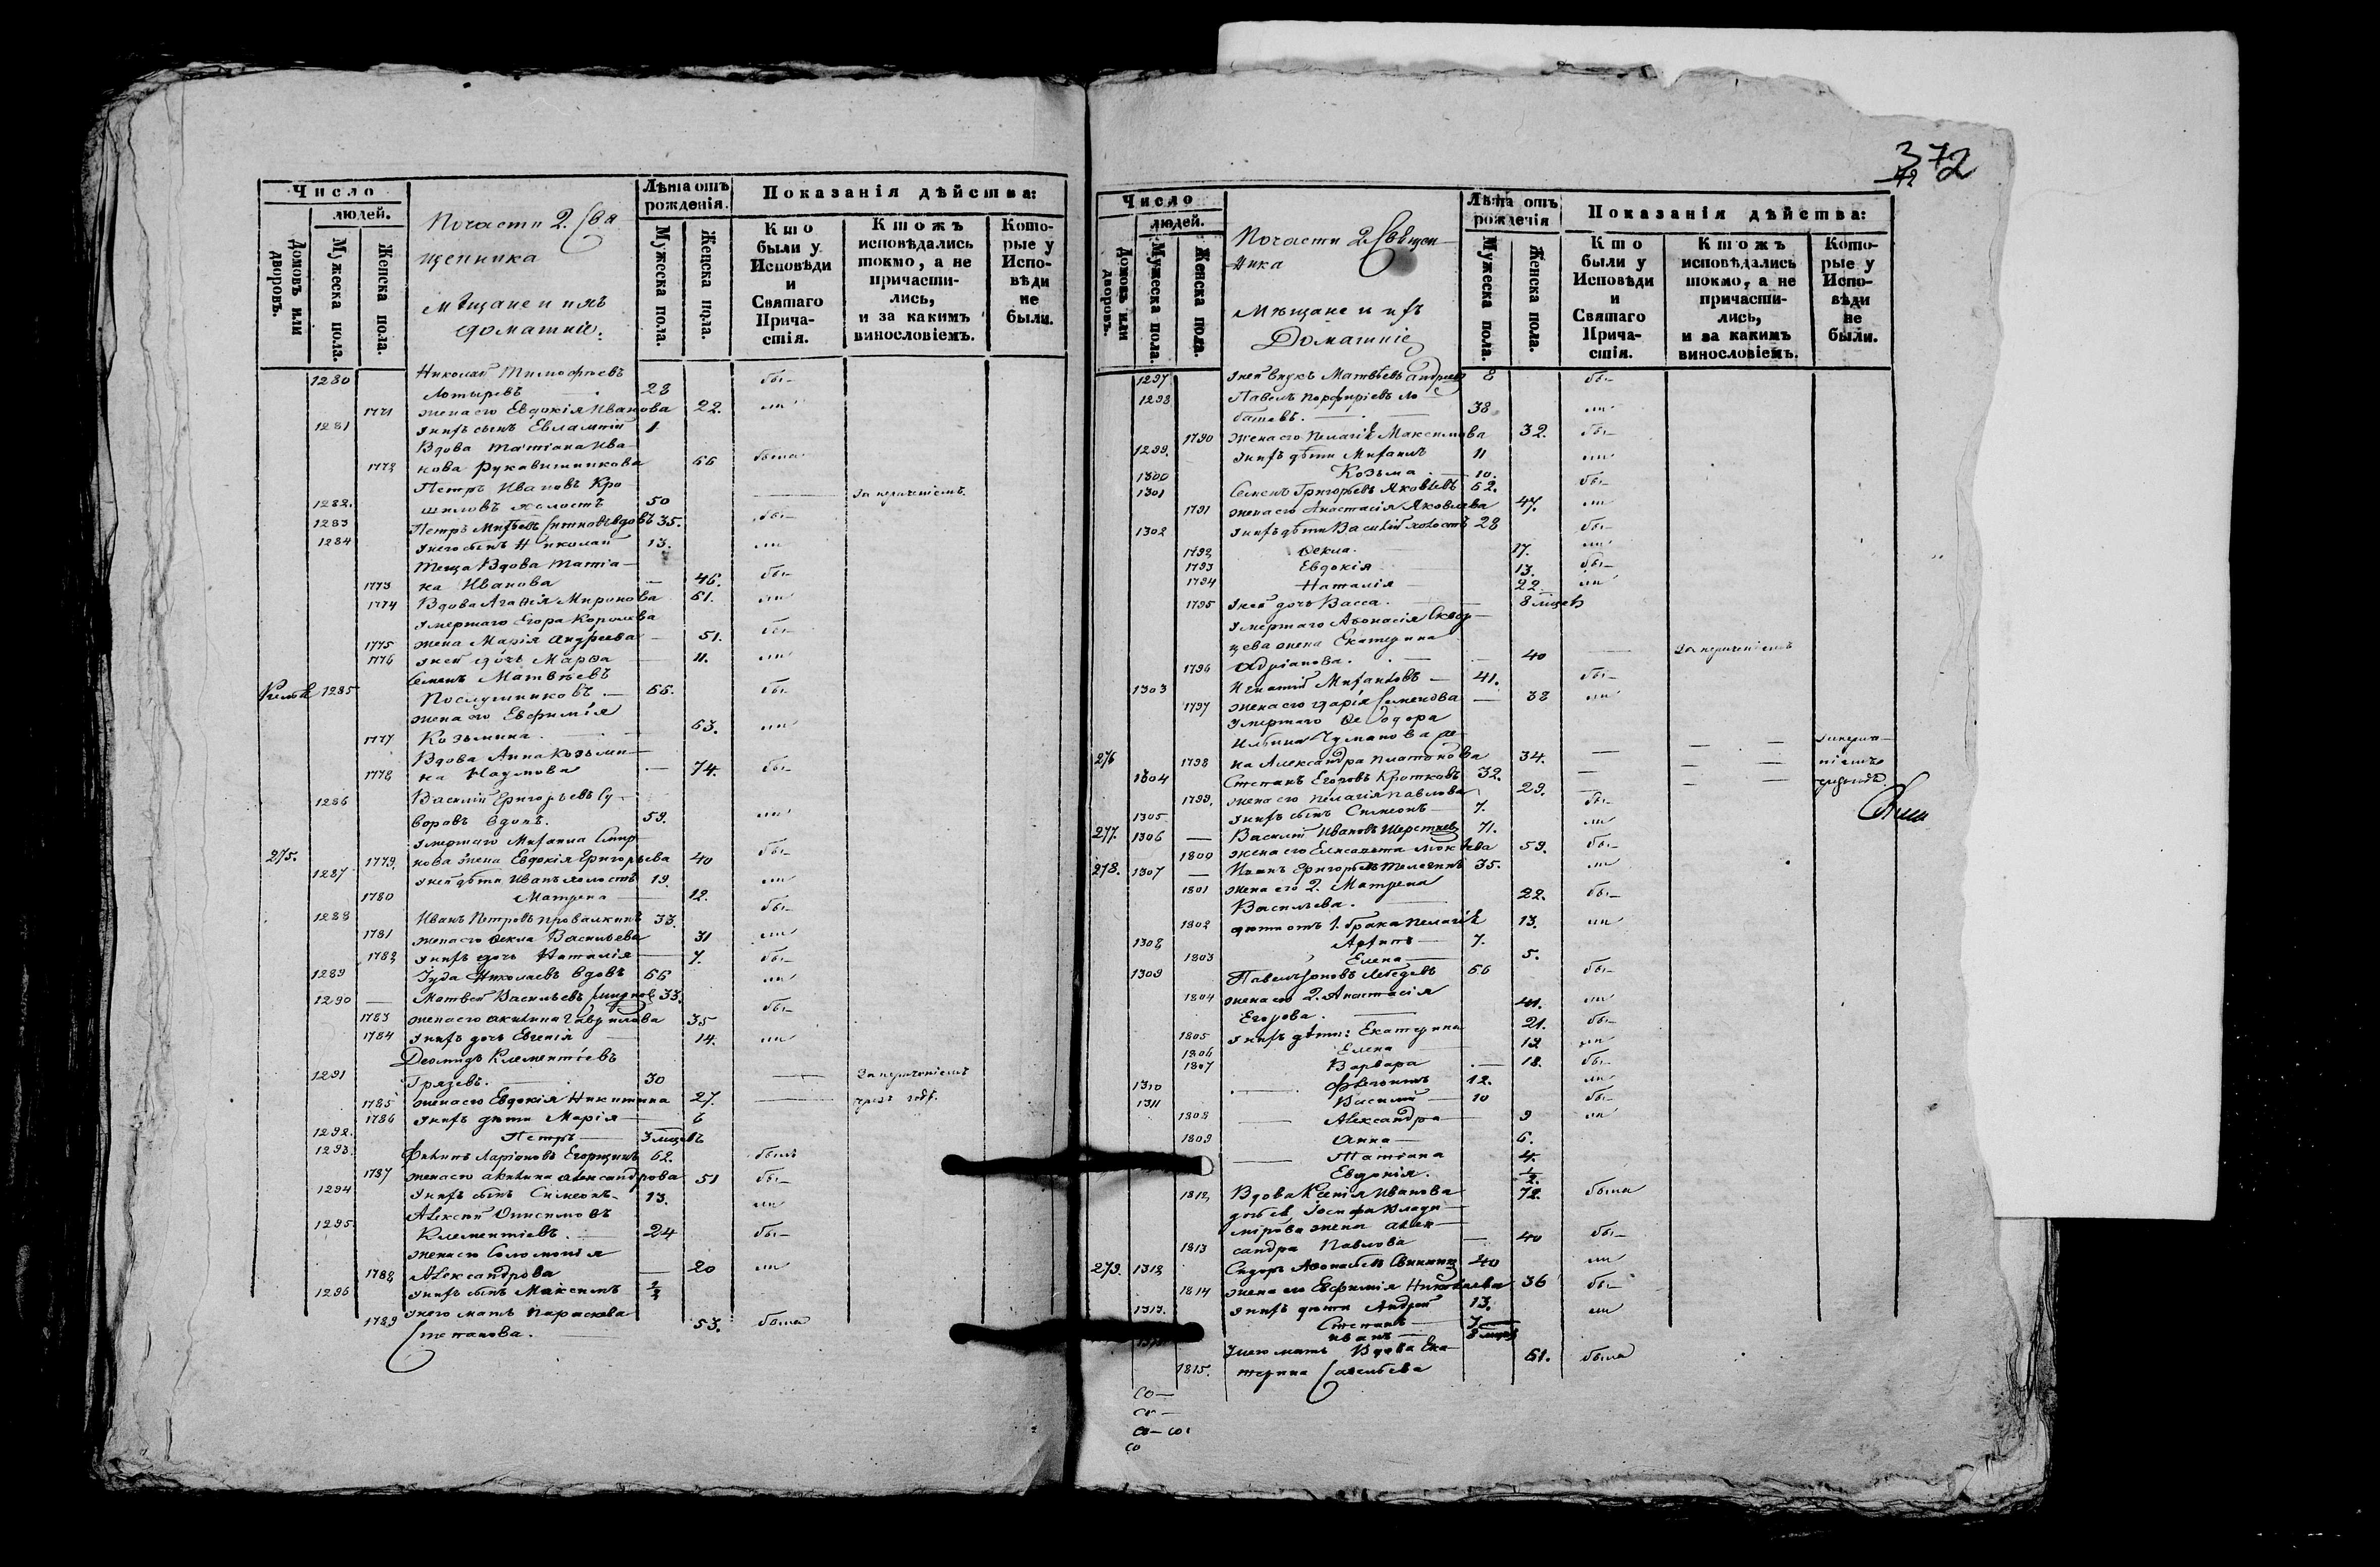 372
72
Число
людей.
Домовъ или дворовъ.
Мужеска пола.
Женска пола.
Почасти 2. Свя
щенника
Мѣщане и ихъ
домашніе.
Лѣта отъ рожденія.
Мужеска пола.
Женска пола.
Показанія дѣйства:
Кто были у Исповѣди и Святаго Причастія.
Ктожъ исповѣдались токмо, а не причастились, и за какимъ винословіемъ.
Которые у Исповѣди не были.
1280 Николай Тимофѣевъ
Лотыревъ 28 бы
1771 жена его Евдокія Иванова 22.
1281 у нихъ сынъ Евлампій 1
Вдова Татіана Ива
1772 нова Рукавишникова 66 была
Петръ Ивановъ Кро
1282. шиловъ холостъ 50 за нераченіемъ.
1283 Петръ вдовъ 35. бы
1284 у него сынъ Николай 13.
Теща Вдова Татіа
1773 на Иванова 46. бы
1774 Вдова Агафія Миронова 61.
умершаго Егора Королева
1775 жена Марія Андреева 51. бы
1776 у ней дочь Марѳа 11.
1285 Семенъ Матвѣевъ
Послушниковъ 66. бы
жена его Евфимія
1777 Козьмина 63.
Вдова Анна Козьми
1778 на Наумова 74. бы
1286 Василій Григорьевъ Су
воровъ вдовъ. 59.
умершаго Михаила Смир
275. 1779. нова жена Евдокія Григорьева 40 бы
1287 у ней дѣти Иванъ холостъ 19.
1780 Матрена 12. бы
1288 Иванъ Петровъ Провалкинъ 33.
1781 жена его Ѳекла Васильева 31
1782 у нихъ дочь Наталія 7. бы
1289 Іуда Николаевъ вдовъ 66
1290 Матвей Васильевъ 33. бы
1783 жена его Акилина Гаврилова 35
1784 у нихъ дочь Евгенія 14.
Деомидъ Клементіевъ
1291 Грязевъ. 30 за нераченіемъ
1785 жена его Евдокія Никитина 27.
1786 у нихъ дѣти Марія 6
1292. Петръ 3 мцевъ
1293. Филипъ Ларіоновъ 62. былъ
1787 жена его Акилина Александрова 51 бы
1294 у нихъ сынъ Симеонъ 13.
Алексій Онисимовъ
1295. Клементіевъ. 24 бы
жена его Соломонія
1788 Александрова 20
1296 у нихъ сынъ Максимъ
у него мать Параскева
1789 Степанова. 53. была
Число
людей.
Домовъ или дворовъ.
Мужеска пола.
Женска пола.
Почасти 2. Священ
ника
Мѣщане и ихъ
Домашніе
Лѣта отъ рожденія
Мужеска пола.
Женска пола.
Показанія дѣйства:
Кто были у Исповѣди и Святаго Причастія.
Ктожъ исповѣдались токмо, а не причастились, и за какимъ винословіемъ.
Которые у Исповѣди не были.
1297 у ней внукъ Матвѣевъ Андрей 8 бы
1298 Павелъ Порфиріевъ Ло
башевъ. 38
1790 жена его Пелагіѣ Максимова 32. бы
1299. у нихъ дѣти Михаилъ 11
1300 Козьма 10. бы
1301 Семенъ Григорьевъ Яковлевъ 62.
1791 жена его Анастасія Яковлева 47.
1302 у нихъ дѣти Василій холостъ 28 бы
1792 Ѳекла 17.
1793 Евдокія 13. бы
1794 Наталія 22.
1795 у ней дочь Васса. 8 мцевъ
умершаго Аѳонасія Сквор
цева жена Екатерина
1796 Адріанова. 40 за нераченіемъ
1303 Игнатій Михаиловъ 41. бы
1797 жена его Дарія Семенова 38
умершаго Ѳеодора
Ильина Чуманова же
276 1798 на Александра Платонова 34.
1304 Степанъ Егоровъ Кротковъ 32.
1799. жена его Пелагія Павлова 29.
1305 у нихъ сынъ Симеонъ 7. бы
277. 1306 Василій Ивановъ Шерстнев 71.
1800 жена его Елисавета 59. бы
278. 1307 Иванъ Григорьевъ Телегинъ 35.
1801 жена его 2. Матрена
Васильева. 22. бы
1802 дѣти отъ 1. брака Пелагіѣ 13.
1308 Архипъ 7.
1803 Елена 5.
1309 Павелъ Іоновъ Лебедевъ 66 бы
1804 жена его 2. Анастасія
Егорова. 41.
1805 у нихъ дѣти: Екатерина 21. бы
1806 Елена 19
1807 Варвара 18. бы
1310 Флегонтъ 12.
1311 Василій 10 бы
1808 Александра 9
1809 Анна 6.
Татіана 4.
Евдокія. 1/2
1812 Вдова Ксенія Иванова 72. была
дочь ея Іосифа Влади
мірова жена Алек
1813 сандра Павлова 40 бы
279. 1312 Сидоръ Аѳонасьевъ Свининъ 40
1814 жена его Евфимія Николаева 36 бы
1313. у нихъ дѣти Андрей 13.
Степанъ 7
Иванъ 8 мцев
у него мать Вдова Ека
1815. терина Савельева 61. была